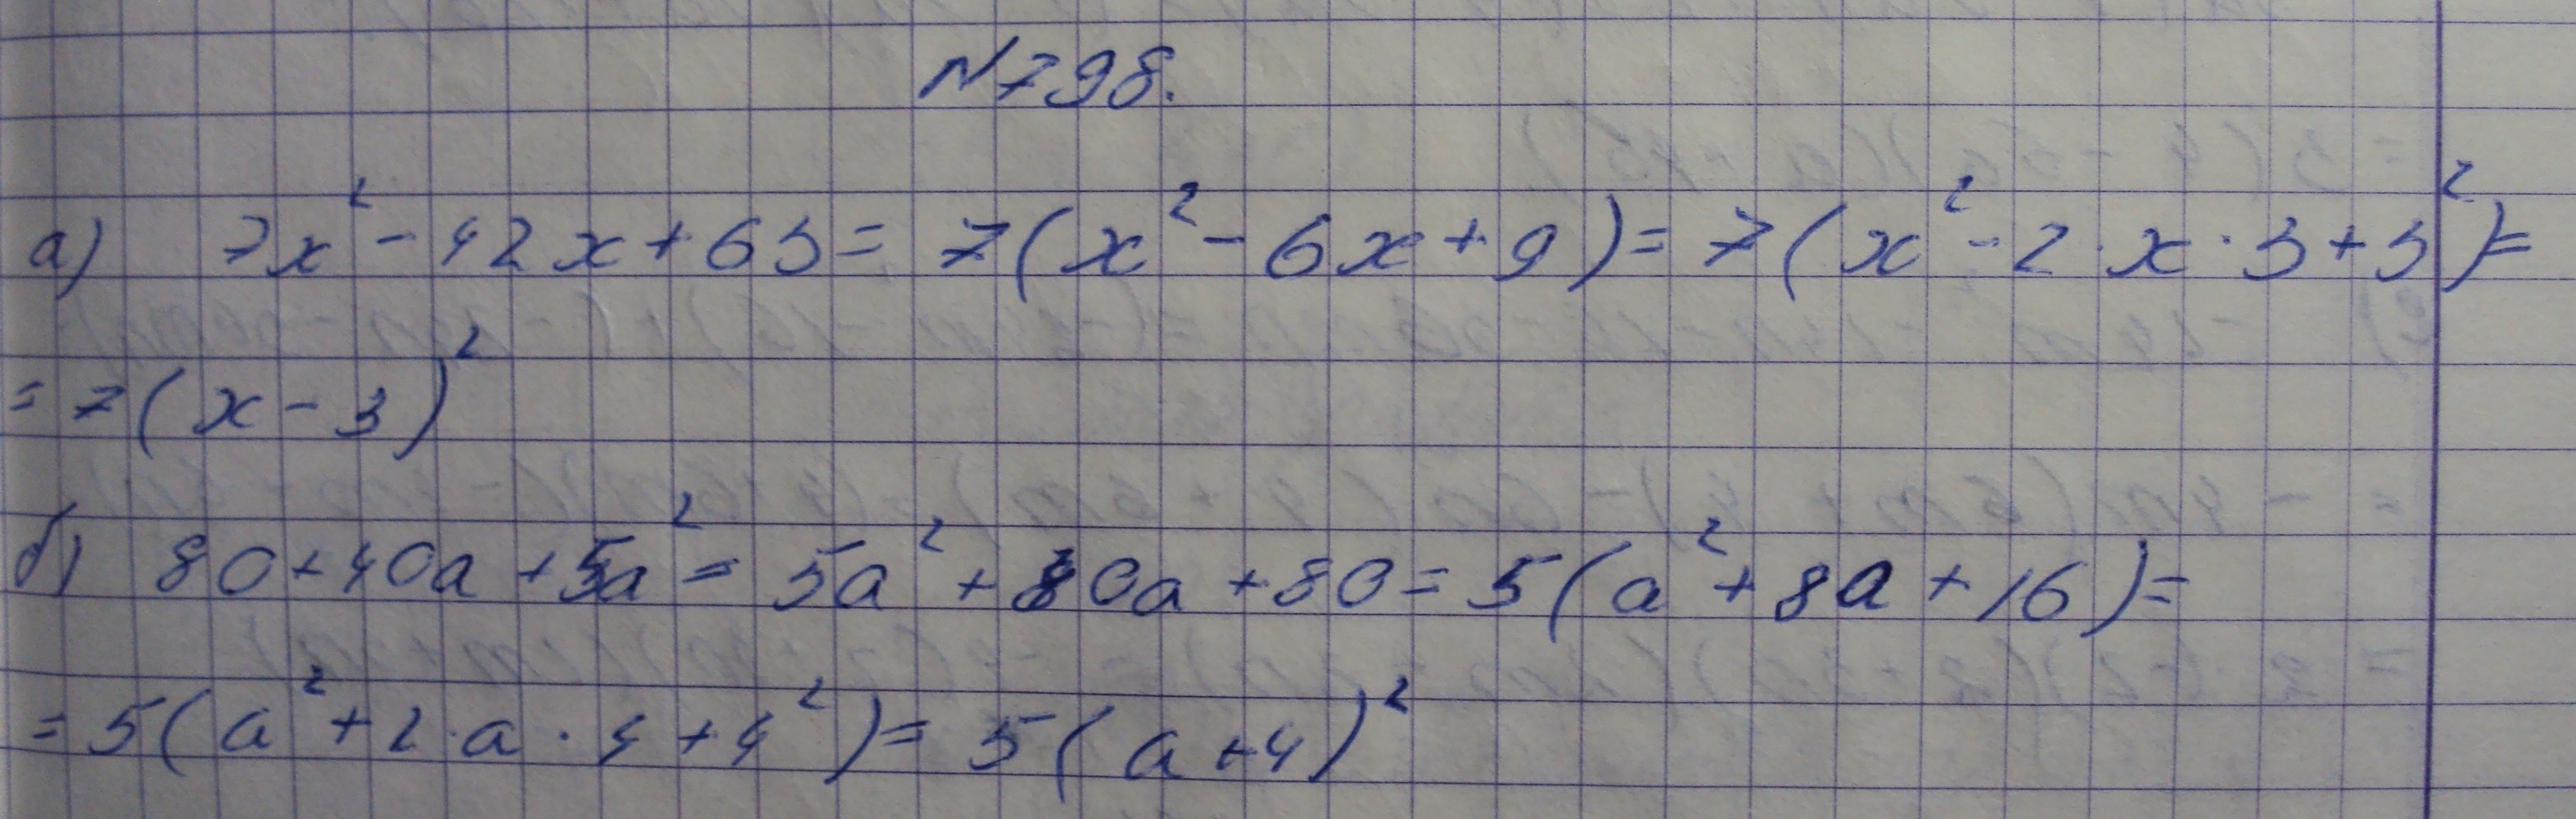 №798.
а) 7x² - 42x + 63 = 7(x² - 6x + 9) = 7(x² - 2·x·3 + 3²) =
= 7(x - 3)²
б) 80 + 40a + 5a² = 5a² + 40a + 80 = 5(a² + 8a + 16) =
= 5(a² + 2·a·4 + 4²) = 5(a + 4)²